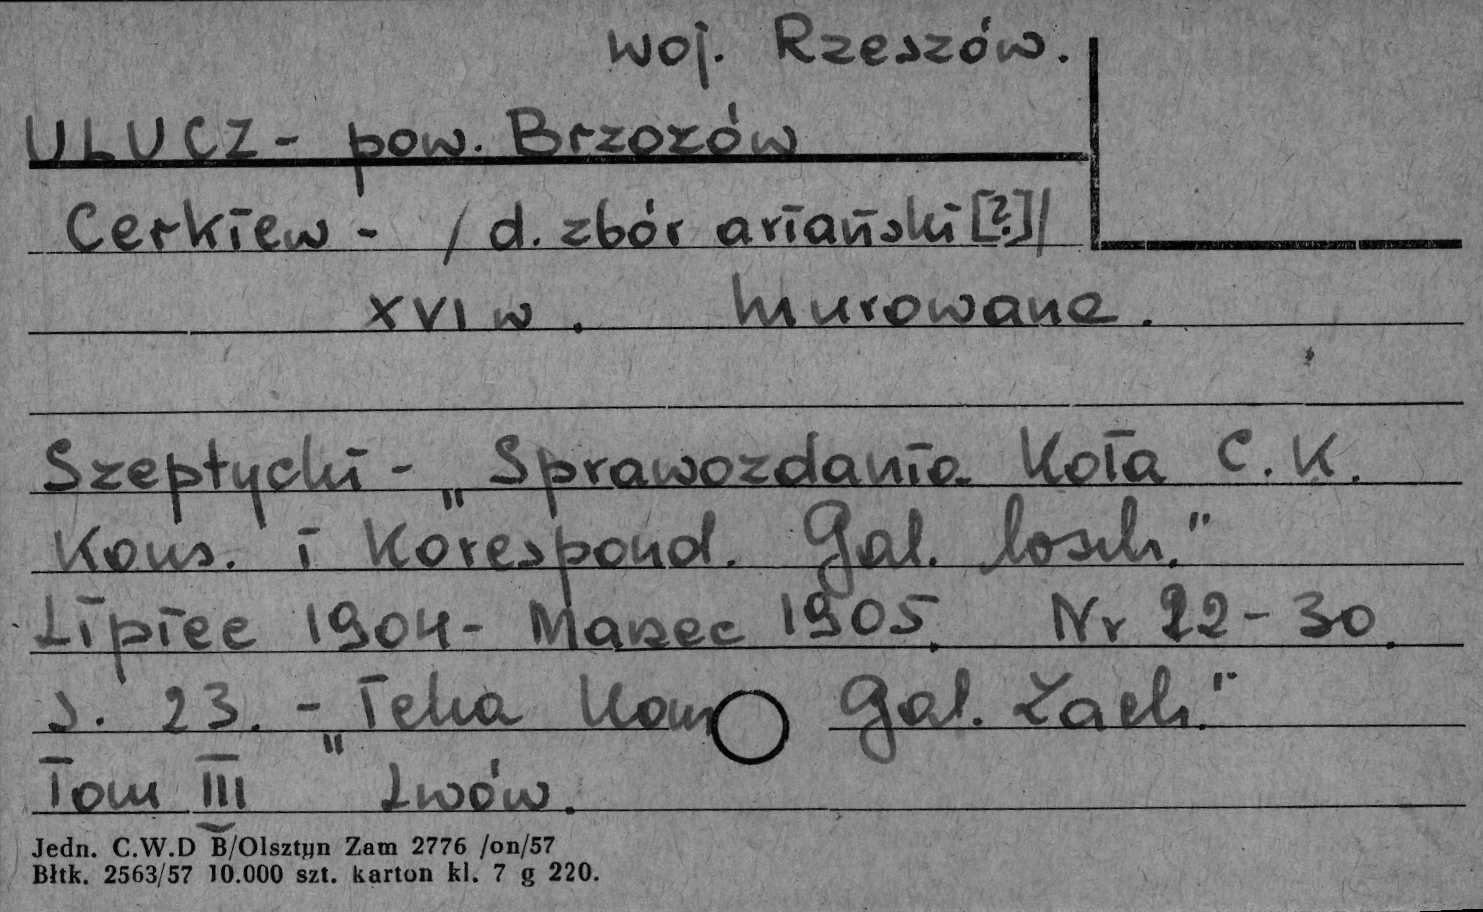 woj. Rzeszów.
ULUCZ - pow. Brzozów
Cerkiew - /d. zbór ariański [?]/
XVI w. murowane.
Szeptycki - „Sprawozdania Koła C.K.
Kons. i Korespond. Gal. Wsch."
Lipiec 1904 - Marzec 1905. Nr 22-30.
s. 23. - „Teka Kon Gal. Zach."
Tom III Lwów.
Jedn. C.W.D B/Olsztyn Zam 2776 /on/57
Błtk. 2563/57 10.000 szt. karton kl. 7 g 220.